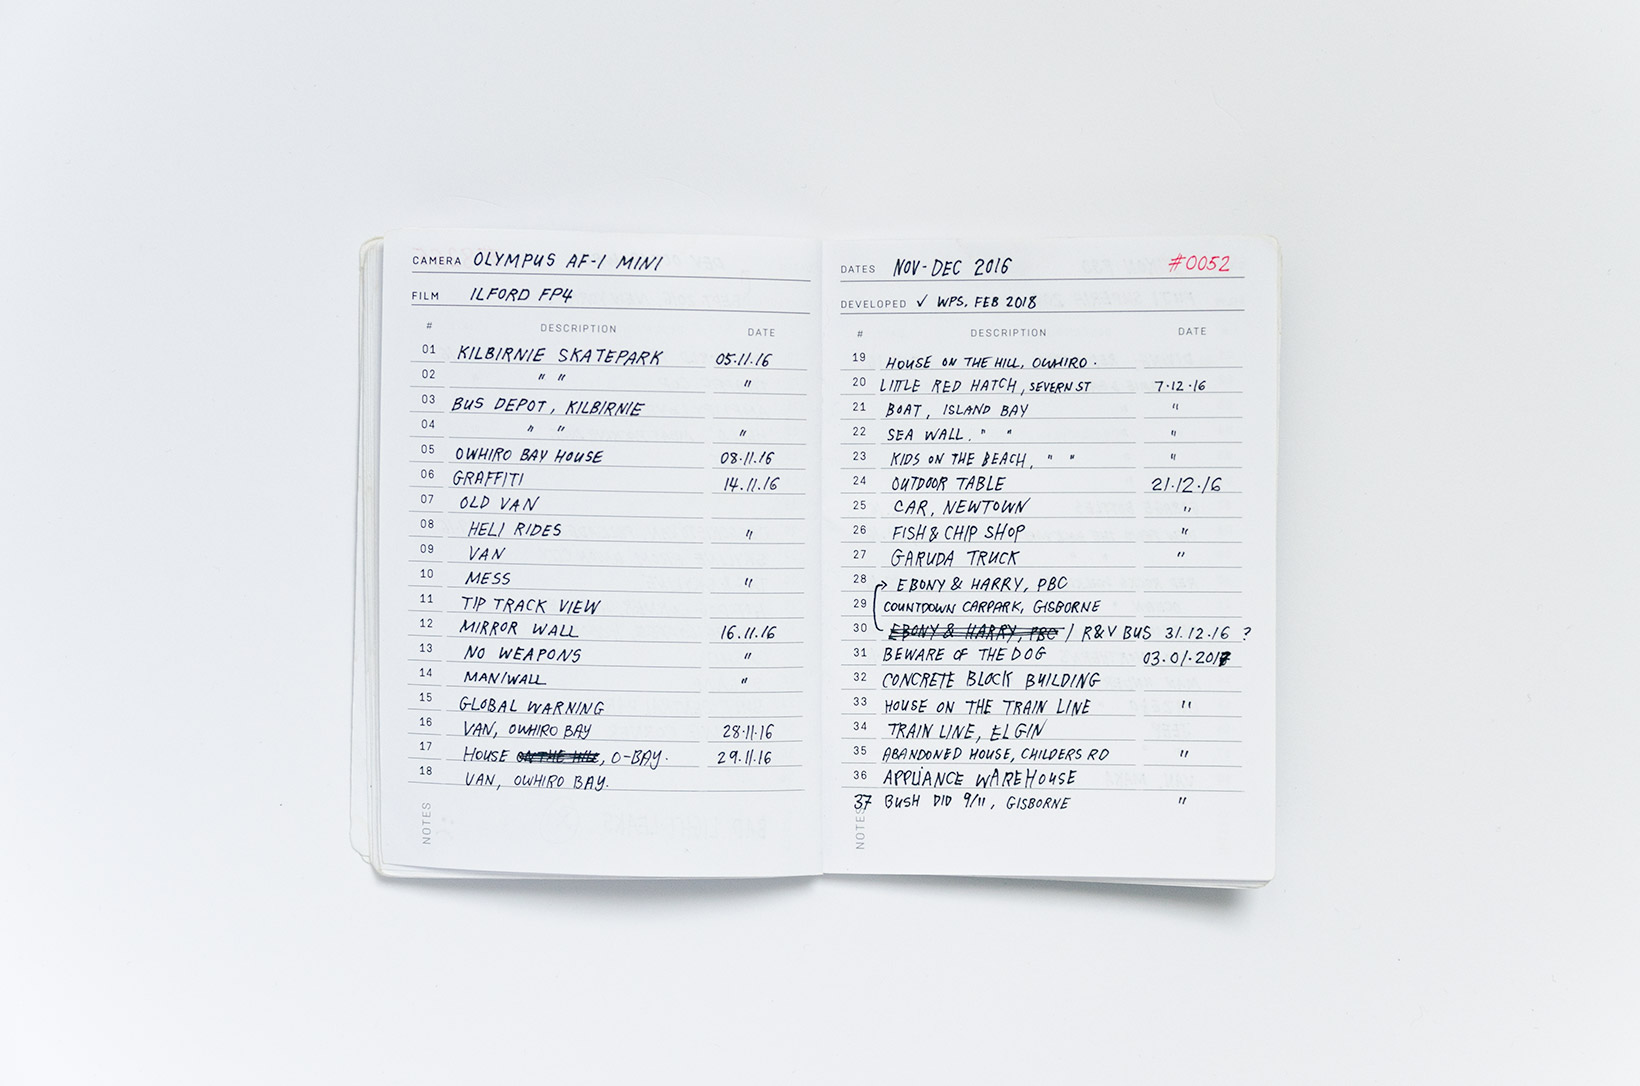 CAMERA OLYMPUS AF-1 MINI
FILM ILFORD FP4
# DESCRIPTION DATE
01 KILBIRNIE SKATEPARK 05.11.16
02 " " "
03 BUS DEPOT, KILBIRNIE
04 " " "
05 OWHIRO BAY HOUSE 08.11.16
06 GRAFFITI 14.11.16
07 OLD VAN
08 HELI RIDES "
09 VAN
10 MESS "
11 TIP TRACK VIEW
12 MIRROR WALL 16.11.16
13 NO WEAPONS "
14 MAN/WALL "
15 GLOBAL WARNING
16 VAN, OWHIRO BAY 28.11.16
17 HOUSE ON THE HILL, O-BAY. 29.11.16
18 VAN, OWHIRO BAY.
NOTES
DATES NOV-DEC 2016 #0052
DEVELOPED ✓ WPS, FEB 2018
# DESCRIPTION DATE
19 HOUSE ON THE HILL, OWHIRO.
20 LITTLE RED HATCH, SEVERN ST 7.12.16
21 BOAT, ISLAND BAY "
22 SEA WALL, " " "
23 KIDS ON THE BEACH, " " "
24 OUTDOOR TABLE 21.12.16
25 CAR, NEWTOWN "
26 FISH & CHIP SHOP "
27 GARUDA TRUCK "
28 EBONY & HARRY, PBC
29 COUNTDOWN CARPARK, GISBORNE
30 EBONY & HARRY, PBC / R&V BUS 31.12.16 ?
31 BEWARE OF THE DOG 03.01.2017
32 CONCRETE BLOCK BUILDING
33 HOUSE ON THE TRAIN LINE "
34 TRAIN LINE, ELGIN
35 ABANDONED HOUSE, CHILDERS RD "
36 APPLIANCE WAREHOUSE
37 BUSH DID 9/11, GISBORNE "
NOTES